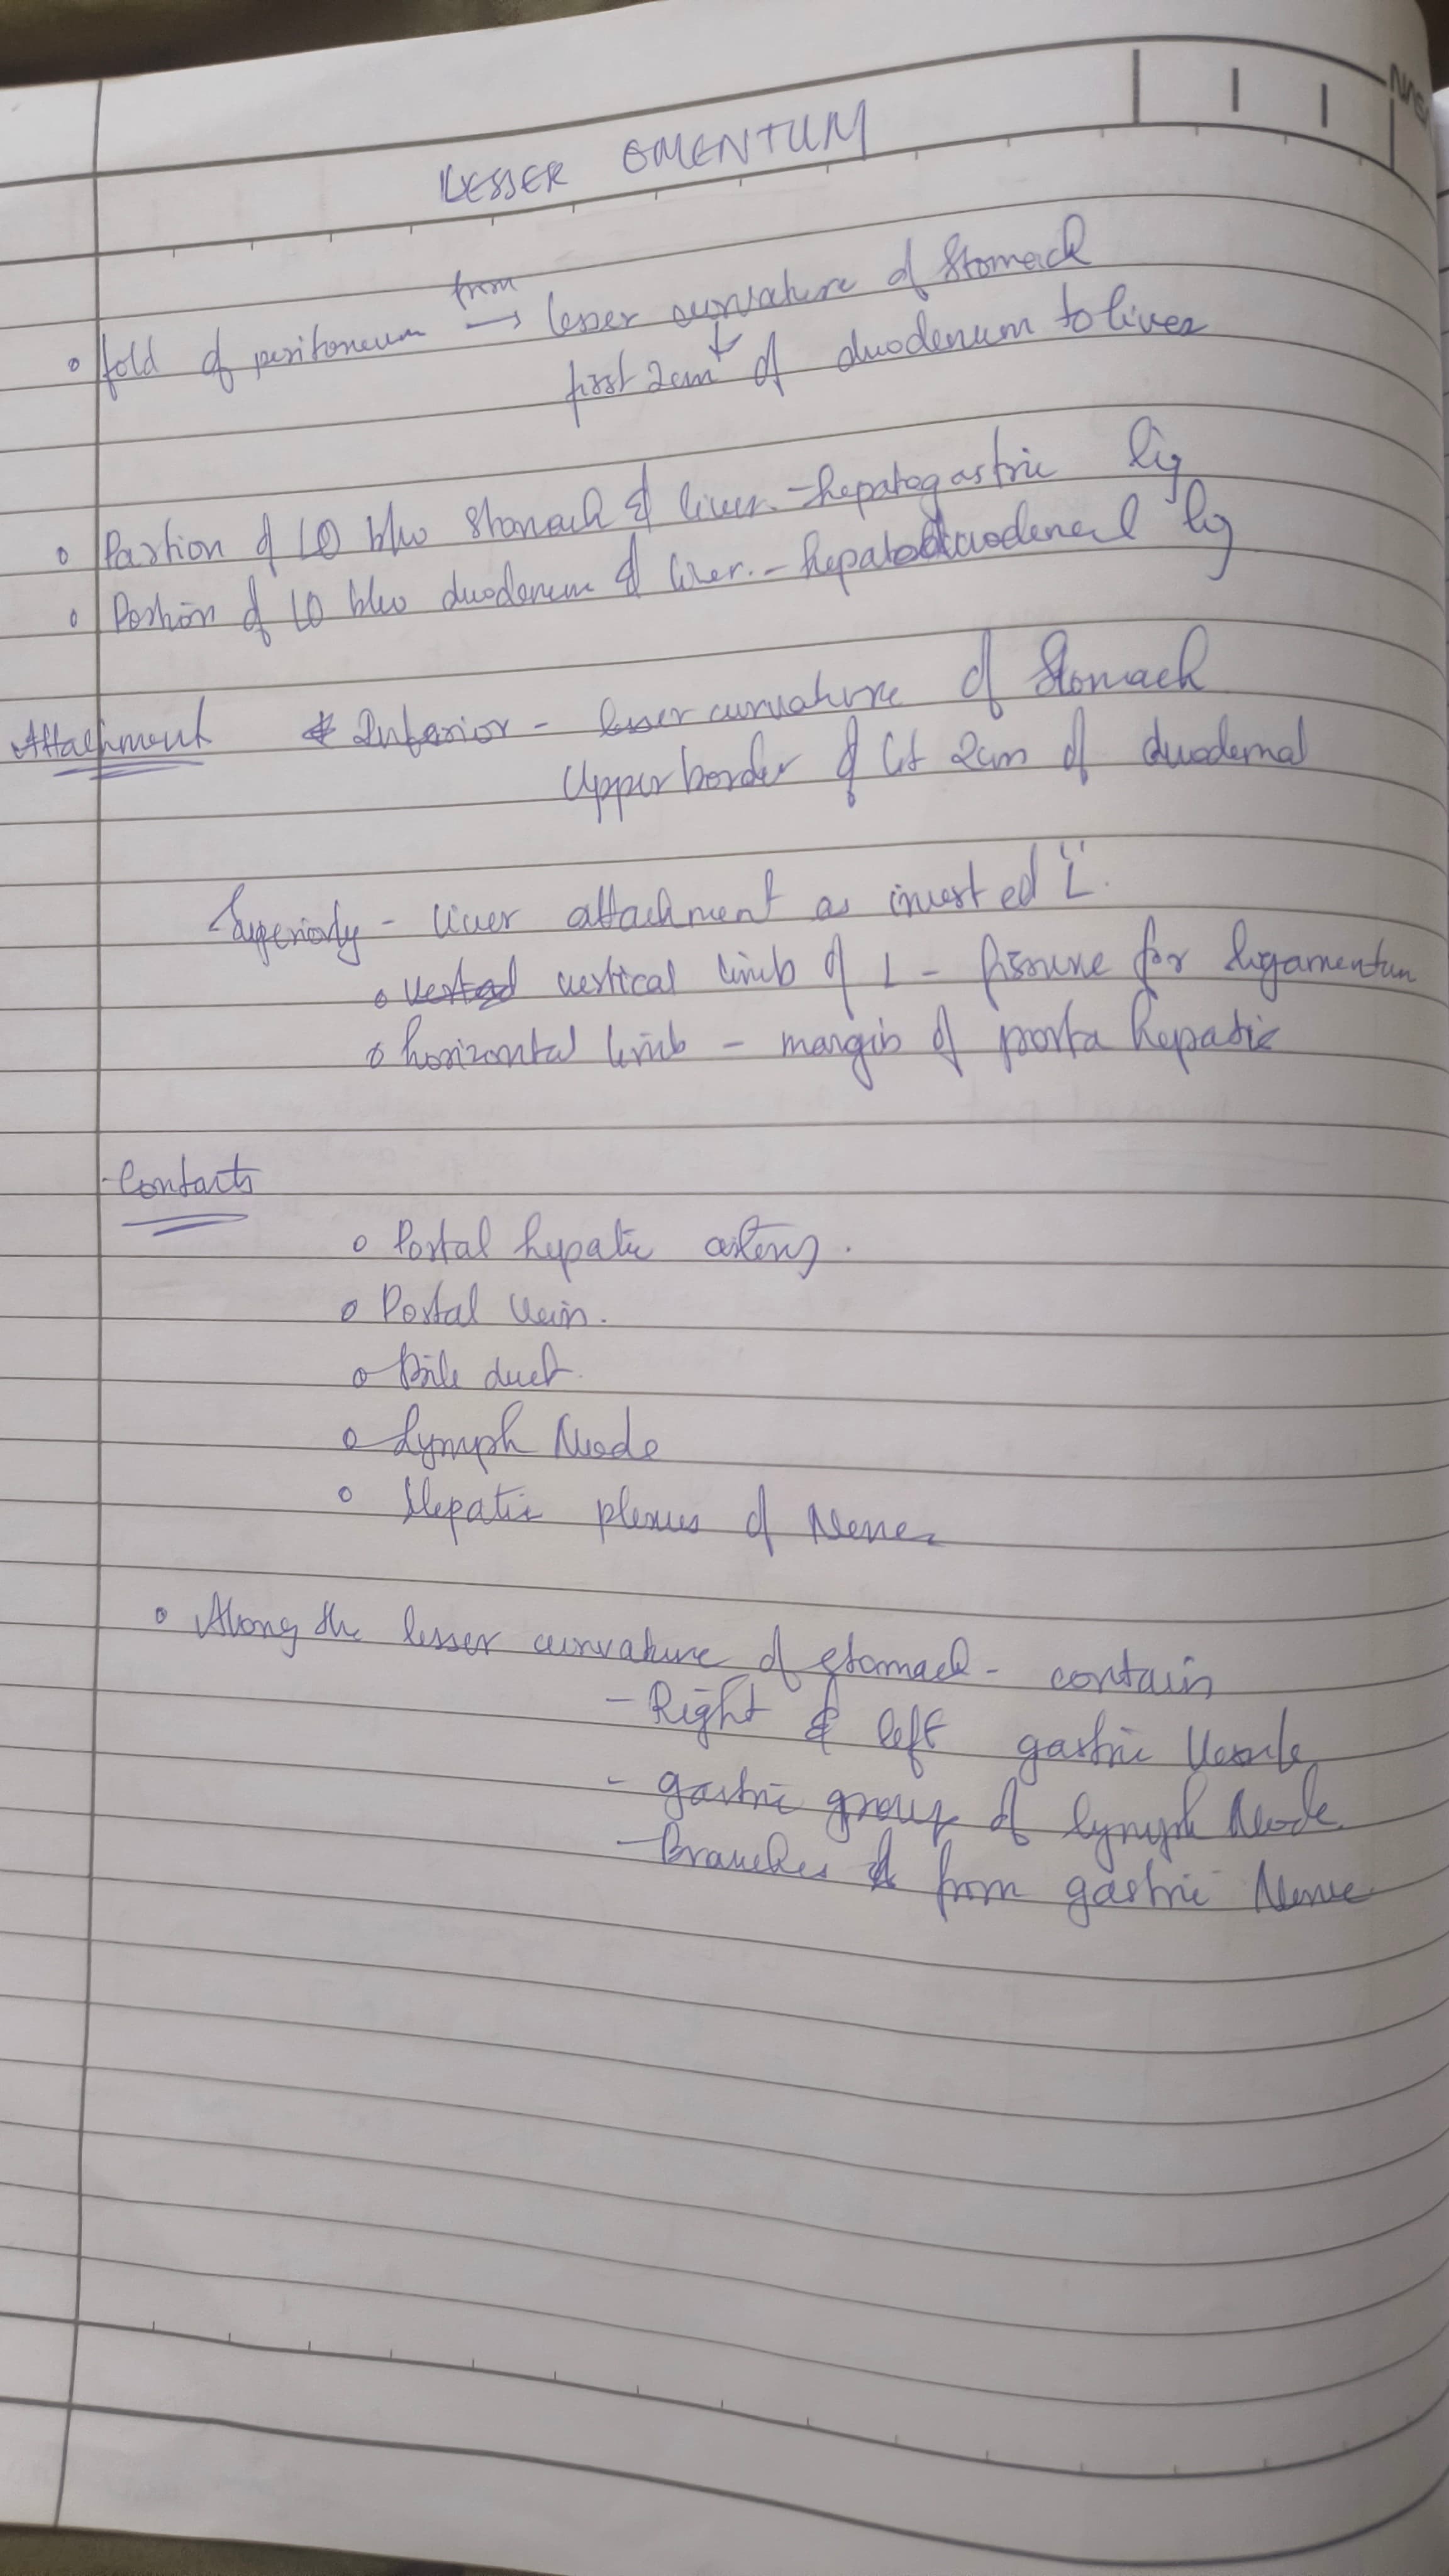 LESSER OMENTUM
from
fold of peritoneum → lesser curvature of Stomach
↓
first 2cm of duodenum to liver
Portion of LO b/w stomach & liver - hepatogastric lig
Portion of LO b/w duodenum & liver. - hepatoduodenal lig
Attachment * Inferior - lesser curvature of Stomach
Upper border of 1st 2cm of duodenal
Superiorly - liver attachment as inverted "L".
vertical limb of L - fissure for ligamentum
horizontal limb - margin of porta hepatic
Contacts
Portal hepatic artery.
Portal Vein.
Bile duct.
Lymph Node
Hepatic plexus of Nerve
Along the lesser curvature of stomach - contain
- Right & left gastric
- gastric group of lymph Node.
- Branches from gastric Nerve